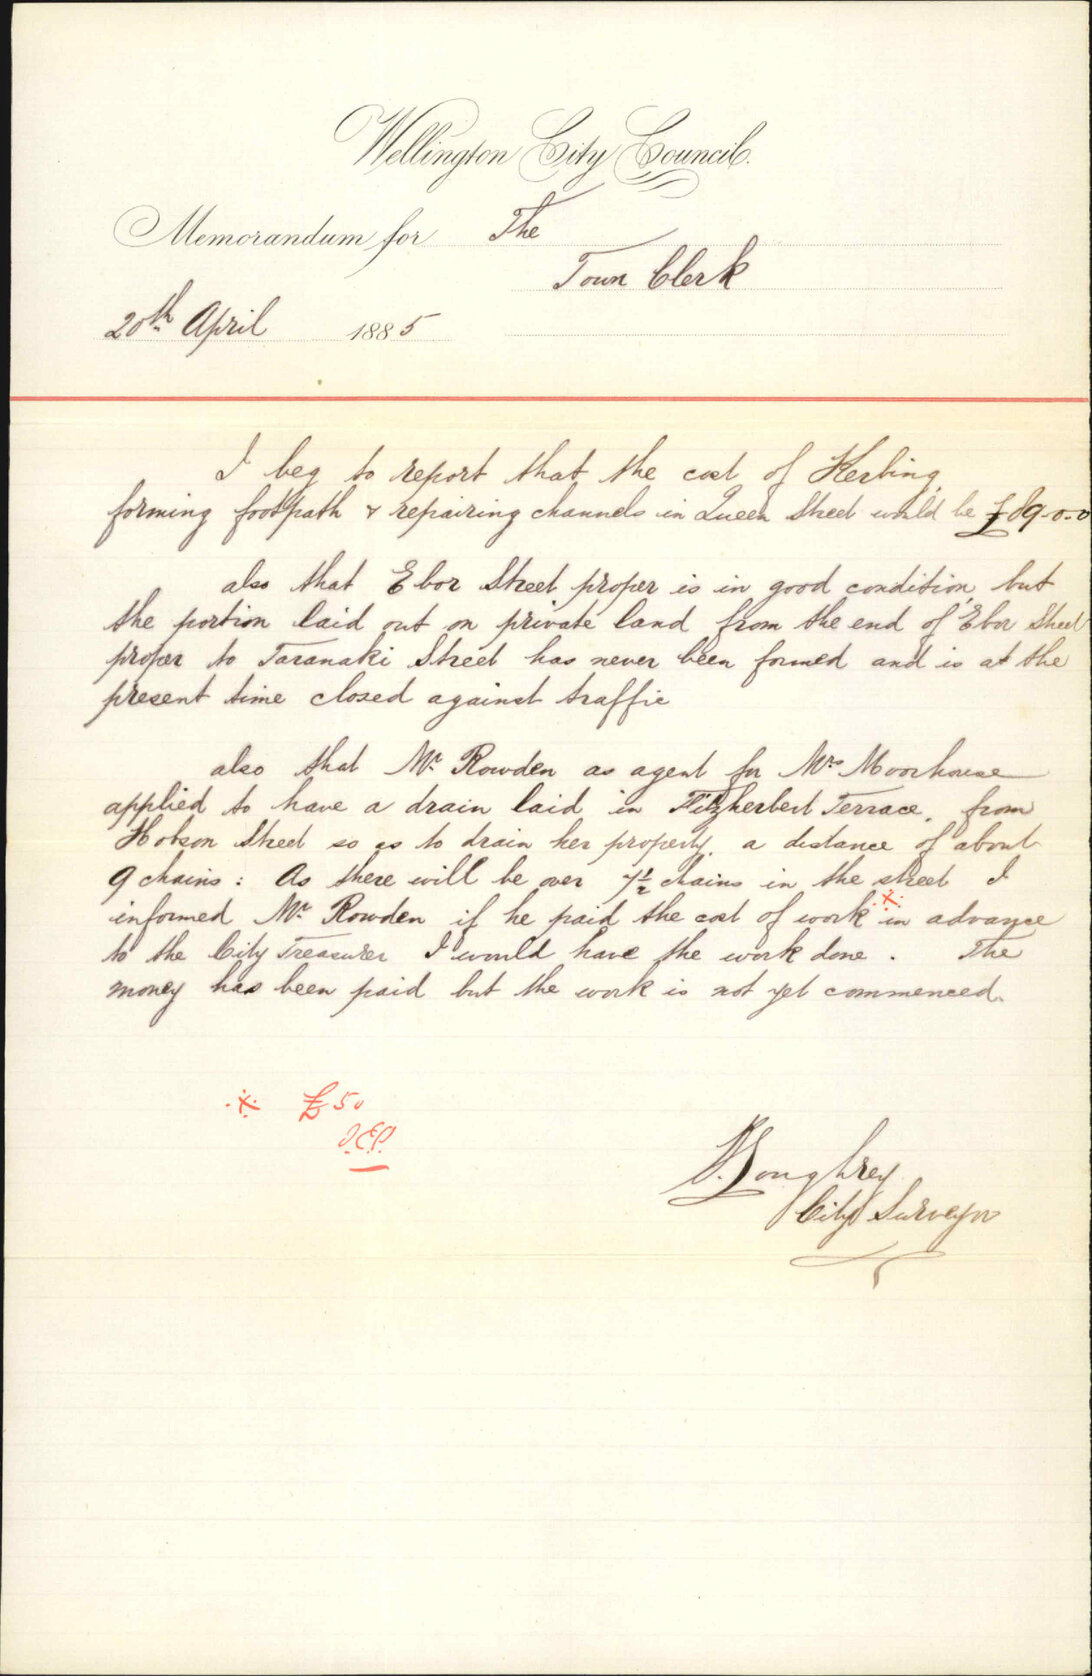 Wellington City Council.
Memorandum for The
Town Clerk
20th April 1885
I beg to report that the cost of Kerbing,
forming footpath & repairing channels in Queen Street would be £89-0-0
also that Ebor Street proper is in good condition, but
the portion laid out on private land from the end of Ebor Street
proper to Taranaki Street has never been formed and is at the
present time closed against traffic
also that Mr. Rowden as agent for Mrs Moorhouse
applied to have a drain laid in Fitzherbert Terrace, from
Hobson Street so as to drain her property, a distance of about
9 chains: As there will be over 7½ chains in the street I
informed Mr. Rowden if he paid the cost of work ※ in advance
to the City Treasurer I would have the work done. The
money has been paid but the work is not yet commenced.
※ £50
J.E.P.
J. Loughrey
City Surveyor